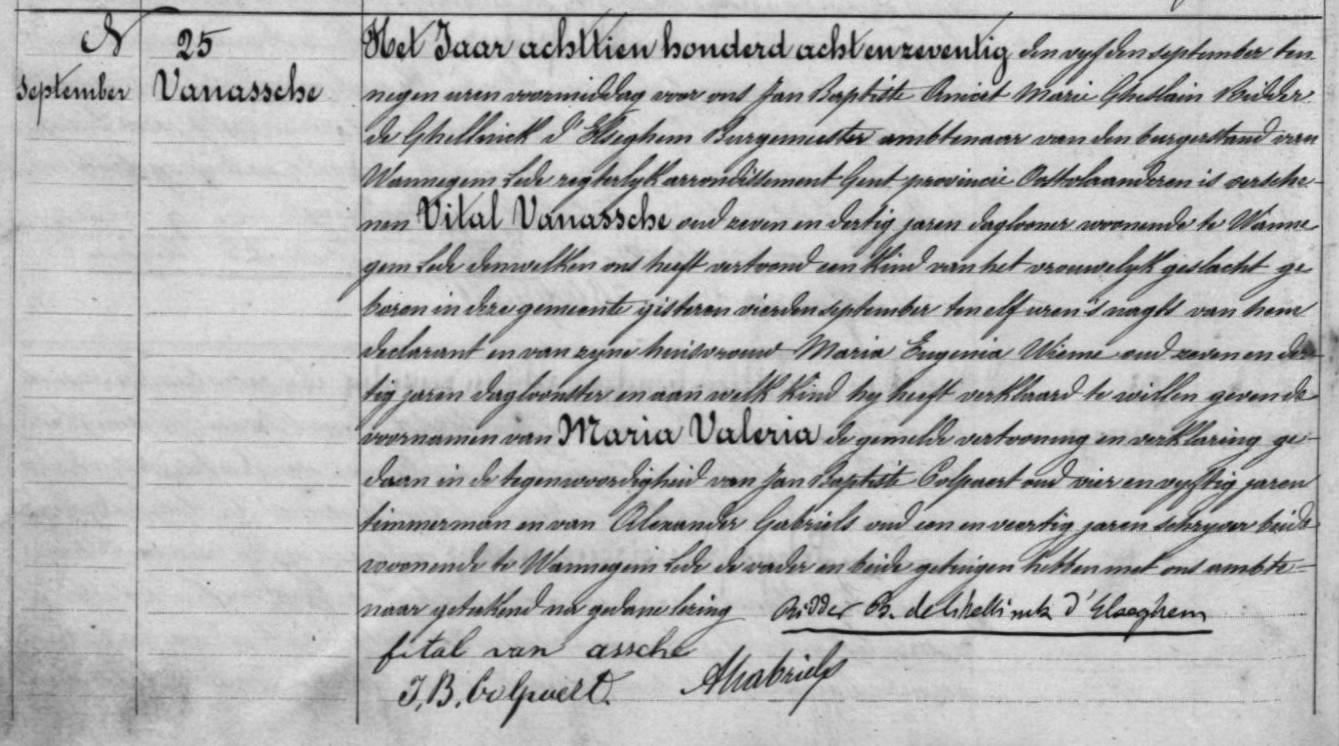 N 25
september Vanassche
Het Jaar achttien honderd acht en zeventig den vyfden september ten
negen uren voormiddag voor ons Jan Baptiste Amicet Marie Ghislain Ridder
de Ghellinck d'Elseghem Burgemeester ambtenaar van den burgerstand van
Wannegem Lede regterlyk arrondissement Gent provincie Oostvlaanderen is versche-
nen Vital Vanassche oud zeven en dertig jaren daglooner woonende te Wanne
gem Lede denwelken ons heeft vertoond een kind van het vrouwelyk geslacht ge
boren in deze gemeente gisteren vierden september ten elf uren 's nagts van hem
declarant en van zyne huisvrouw Maria Eugenia Wieme oud zeven en der-
tig jaren dagloonster en aan welk kind hy heeft verklaard te willen geven de
voornamen van Maria Valeria de gemelde vertooning en verklaring ge-
daan in de tegenwoordigheid van Jan Baptiste Colpaert oud vier en vyftig jaren
timmerman en van Alexander Gabriels oud een en veertig jaren schryver beide
woonende te Wannegem Lede de vader en beide getuigen hebben met ons ambte-
naar geteekend na gedane lezing Ridder B. de Ghellinck d'Elseghem
fital van assche
J,B, Colpaert. AGabriels